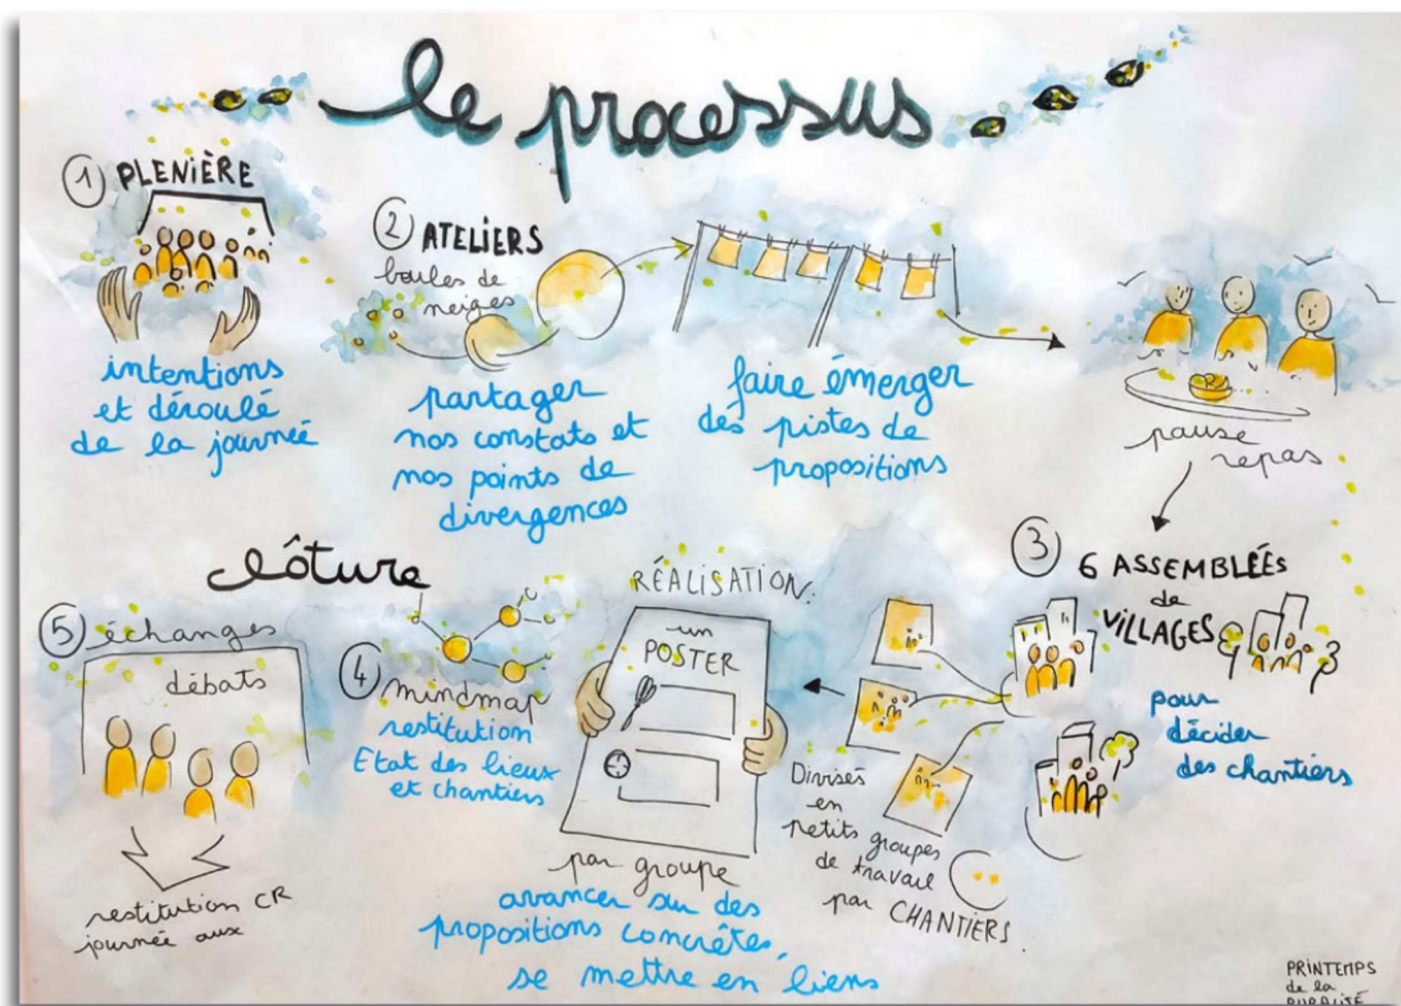 le processus
1 PLENIÈRE
intentions
et déroulé
de la journée
2 ATELIERS
boules de
neiges
partager
nos constats et
nos points de
divergences
faire émerger
des pistes de
propositions
pause
repas
3 6 ASSEMBLÉES
de
VILLAGES
pour
décider
des chantiers
Divisés
en
petits groupes
de travail
par CHANTIERS.
RÉALISATION:
un
POSTER
par groupe
avancer sur des
propositions concrètes,
se mettre en liens
clôture
4 mindmap
restitution
Etat des lieux
et chantiers
5 échanges
débats
restitution CR
journée aux
PRINTEMPS
de la